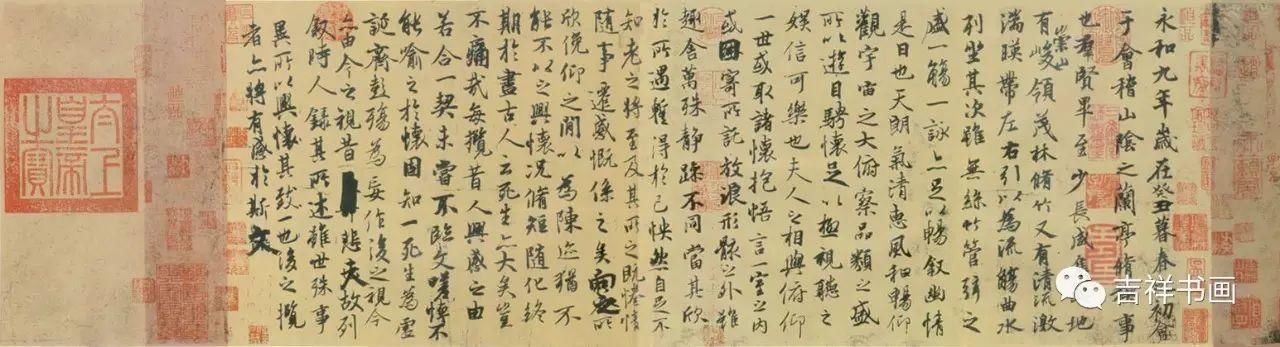 永和九年歲在癸丑暮春之初會
于會稽山陰之蘭亭脩稧事
也羣賢畢至少長咸集此地
有崇山峻領茂林脩竹又有清流激
湍暎帶左右引以為流觴曲水
列坐其次雖無絲竹管弦之
盛一觴一詠亦足以暢敘幽情
是日也天朗氣清惠風和暢仰
觀宇宙之大俯察品類之盛
所以遊目騁懷足以極視聽之
娛信可樂也夫人之相與俯仰
一世或取諸懷抱悟言一室之內
或因寄所託放浪形骸之外雖
趣舍萬殊靜躁不同當其欣
於所遇蹔得於己怏然自足不
知老之將至及其所之既惓情
隨事遷感慨係之矣向之所
欣俛仰之間以為陳迹猶不
能不以之興懷況脩短隨化終
期於盡古人云死生亦大矣豈
不痛哉每攬昔人興感之由
若合一契未嘗不臨文嗟悼不
能喻之於懷固知一死生為虛
誕齊彭殤為妄作後之視今
亦由今之視昔悲夫故列
敘時人錄其所述雖世殊事
異所以興懷其致一也後之攬
者亦將有感於斯文
太上皇帝之寶
吉祥书画